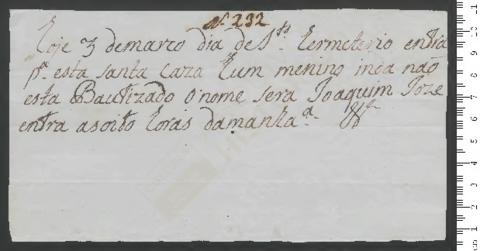 Nº 232
Hoje 3 demarco dia de Sto. Hermeterio entra
pª. esta santa Caza hum menino inda não
esta Bautizado o nome sera Joaquim Joze
entra asoito horas damanhaª